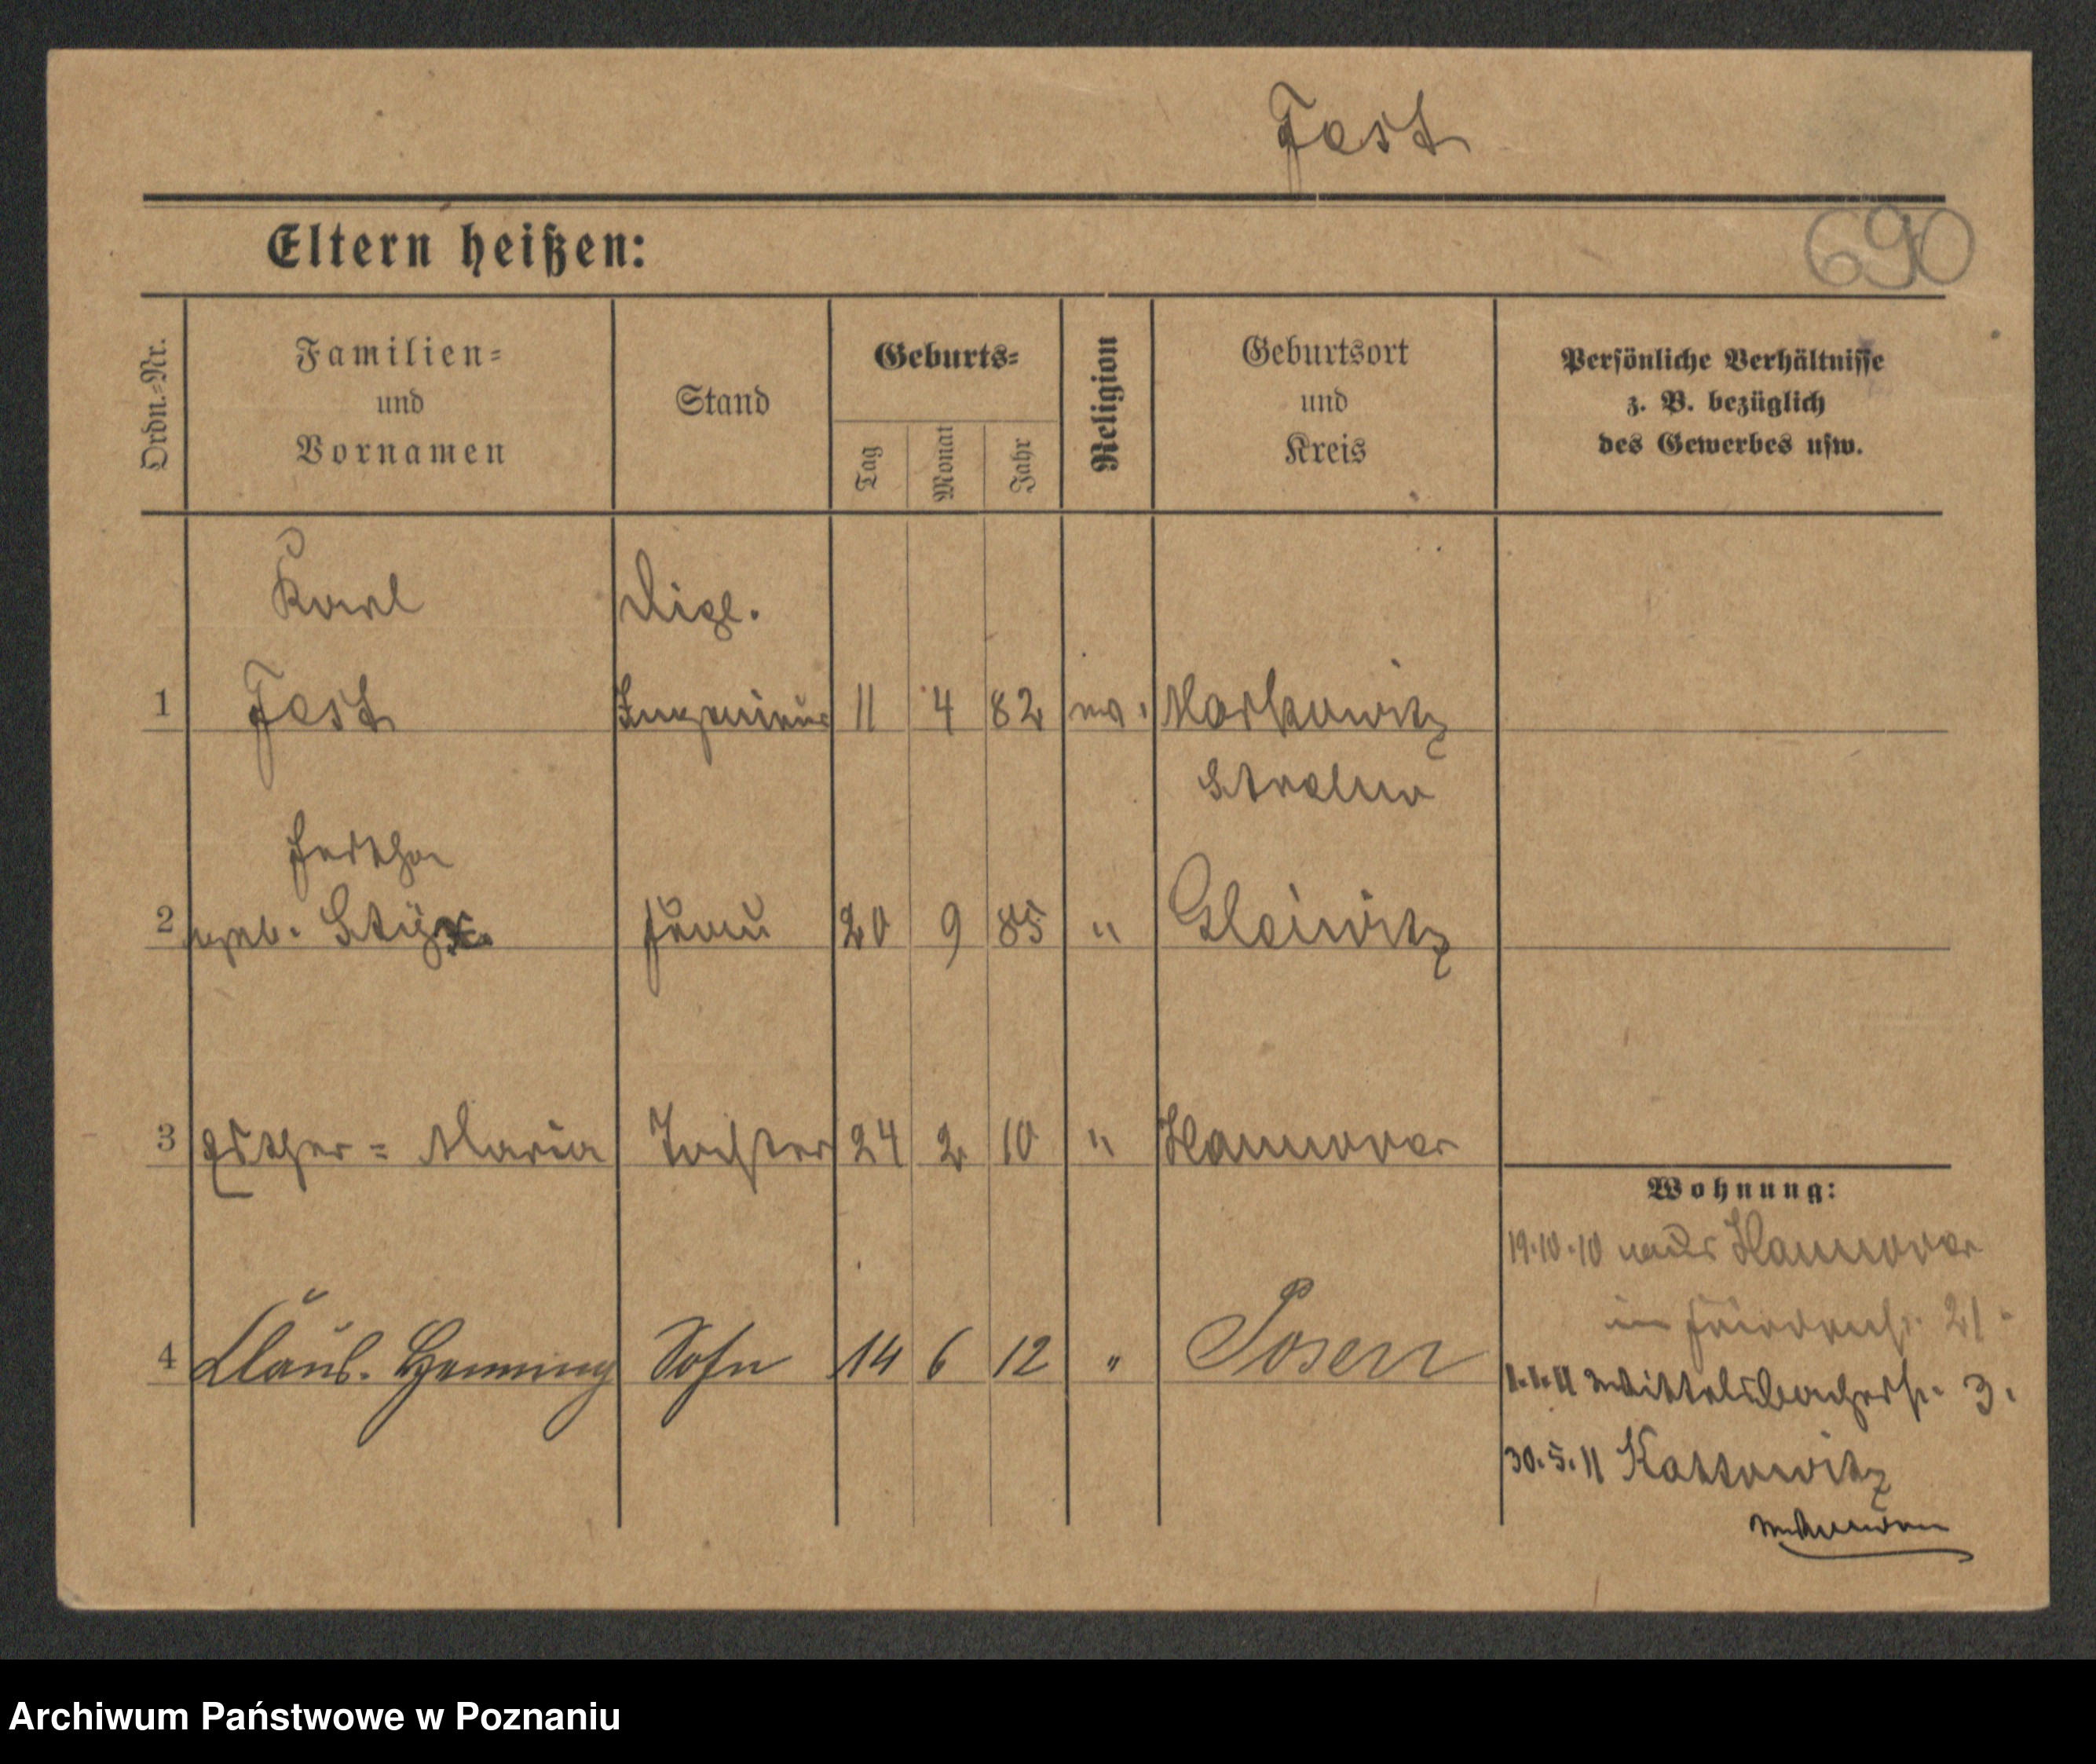 Fest
Eltern heißen:
690
Ordn.=Nr.
Familien=
und
Vornamen
Stand
Geburts=
Tag
Monat
Jahr
Religion
Geburtsort
und
Kreis
Persönliche Verhältnisse
z. B. bezüglich
des Gewerbes usw.
Karl
Dipl.
1 Fest Ingenieur 11 4 82 ev. Markowitz
Strelno
Hertha
2 geb. Frau 20 9 85 " Gleiwitz
3 Esther = Maria Tochter 24 2 10 " Hannover
Wohnung:
19.10.10 aus Hannover
21
4 Claus. Henning Sohn 14 6 12 " Posen
1.1.11 Wittelsbacherstr. 3.
30.5.11 Kattowitz
Archiwum Państwowe w Poznaniu